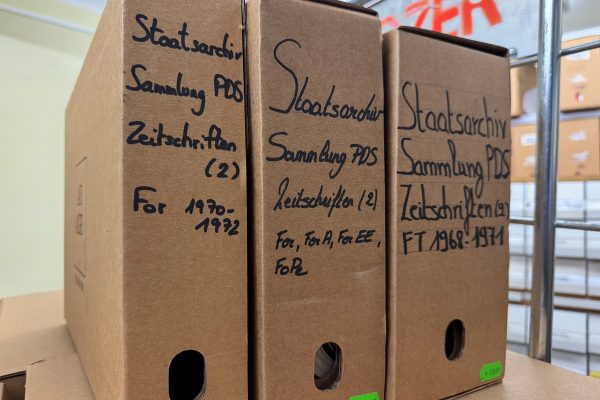 Staatsarchiv
Sammlung PDS
Zeitschriften
(2)
For 1970-
1972
Staatsarchiv
Sammlung PDS
Zeitschriften (2)
For, For A, For EE,
Staatsarchiv
Sammlung PDS
Zeitschriften (2)
FT 1968-1971